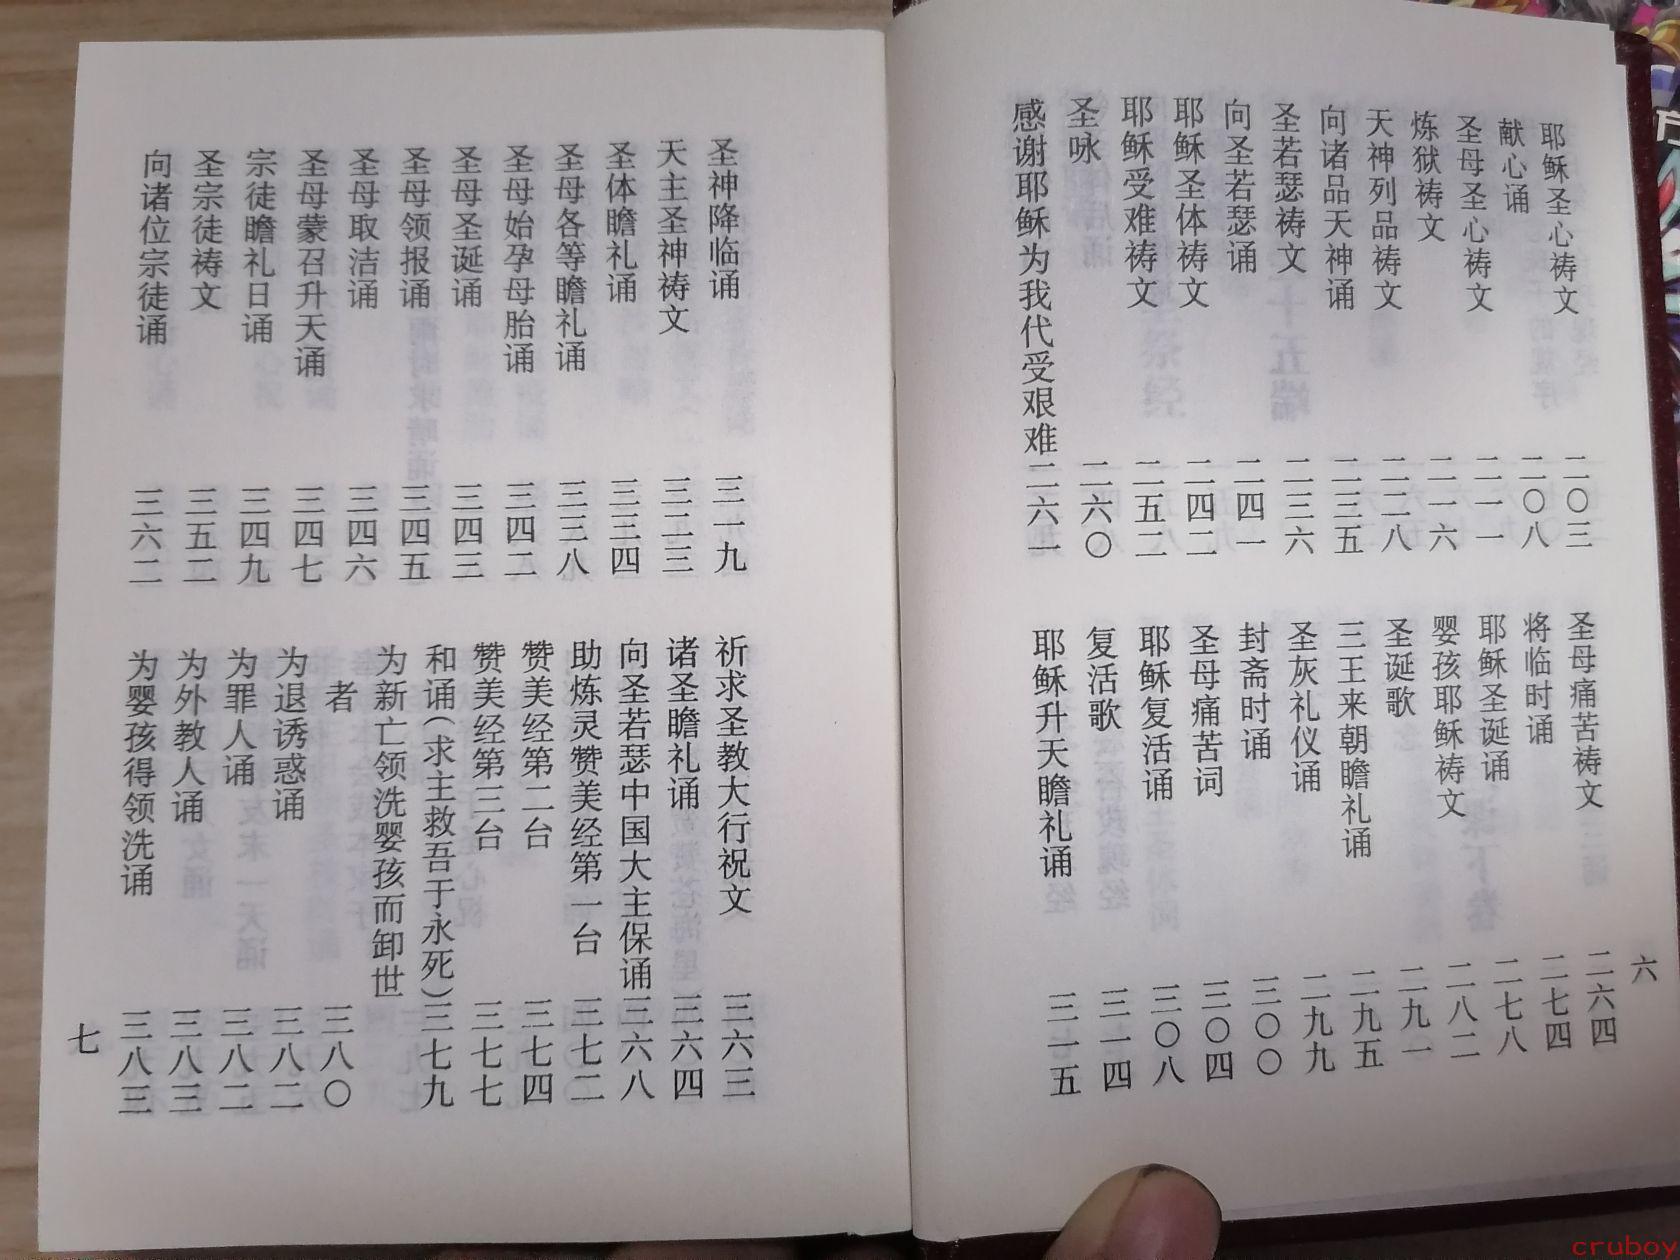 耶稣圣心祷文 二〇三
献心诵 二〇八
圣母圣心祷文 二一一
炼狱祷文 二一六
天神列品祷文 二二八
向诸品天神诵 二三五
圣若瑟祷文 二三六
向圣若瑟诵 二四一
耶稣圣体祷文 二四二
耶稣受难祷文 二五二
圣咏 二六〇
感谢耶稣为我代受艰难 二六一
圣母痛苦祷文 二六四
将临时诵 二七四
耶稣圣诞诵 二七八
婴孩耶稣祷文 二八二
圣诞歌 二九一
三王来朝瞻礼诵 二九五
圣灰礼仪诵 二九九
封斋时诵 三〇〇
圣母痛苦词 三〇四
耶稣复活诵 三〇八
复活歌 三一四
耶稣升天瞻礼诵 三一五
六
圣神降临诵 三一九
天主圣神祷文 三二三
圣体瞻礼诵 三三四
圣母各等瞻礼诵 三三八
圣母始孕母胎诵 三四二
圣母圣诞诵 三四三
圣母领报诵 三四五
圣母取洁诵 三四六
圣母蒙召升天诵 三四七
宗徒瞻礼日诵 三四九
圣宗徒祷文 三五二
向诸位宗徒诵 三六二
祈求圣教大行祝文 三六三
诸圣瞻礼诵 三六四
向圣若瑟中国大主保诵 三六八
助炼灵赞美经第一台 三七二
赞美经第二台 三七四
赞美经第三台 三七七
和诵(求主救吾于永死) 三七九
为新亡领洗婴孩而卸世
者 三八〇
为退诱惑诵 三八二
为罪人诵 三八二
为外教人诵 三八三
为婴孩得领洗诵 三八三
七
cruboy